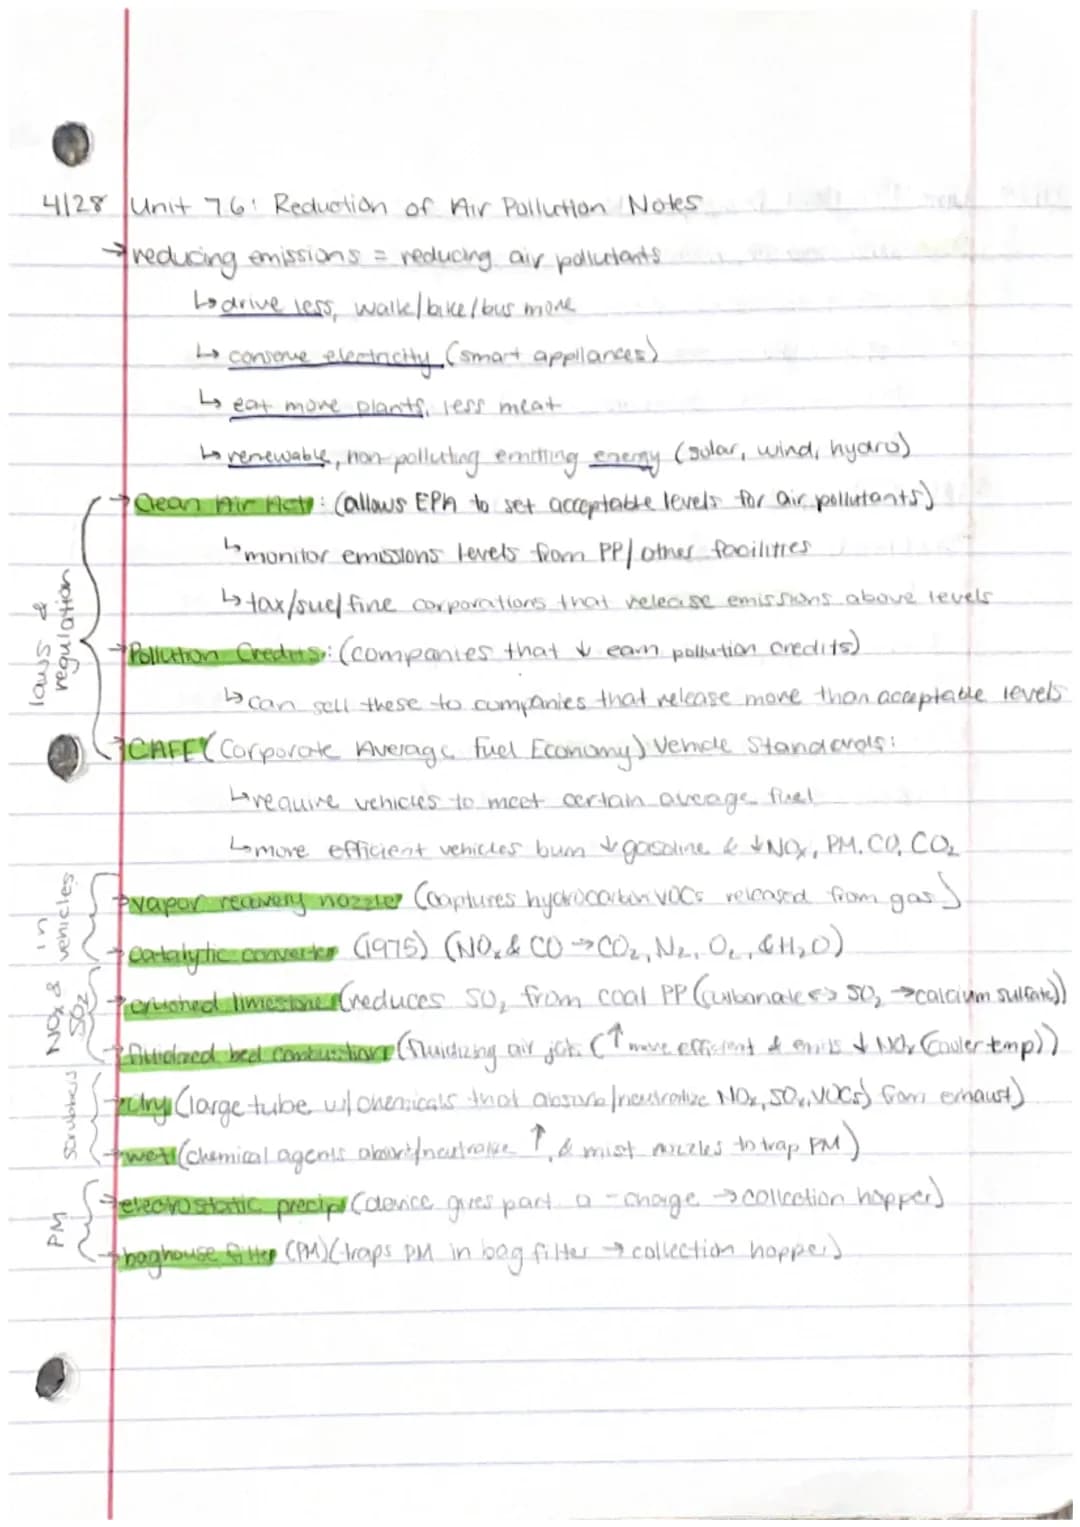 4/28 Unit 7.6: Reduction of Air Pollution Notes
→ reducing emissions = reducing air pollutants
↳ drive less, walk/bike/bus more
↳ conserve electricity (smart appliances)
↳ eat more plants, less meat
↳ renewable, non-polluting emitting energy (solar, wind, hydro)
laws & regulation
→ Clean Air Act: (allows EPA to set acceptable levels for air pollutants)
↳ monitor emissions levels from PP/other facilities
↳ tax/sue/fine corporations that release emissions above levels
→ Pollution Credits: (companies that ↓ earn pollution credits)
↳ can sell these to companies that release more than acceptable levels
→ CAFE (Corporate Average Fuel Economy) Vehicle Standards:
↳ require vehicles to meet certain aveage fuel
↳ more efficient vehicles burn ↓ gasoline & ↓ NOx, PM, CO, CO2
in vehicles
→ vapor recovery nozzle (captures hydrocarbon VOCs released from gas)
→ catalytic converter (1975) (NOx & CO → CO2, N2, O2, & H2O)
NOx & SO2
→ crushed limestone (reduces SO2 from coal PP (carbonate SO2 → calcium sulfate))
→ fluidized bed combustion (fluidizing air jets (↑ more efficient & emits ↓ NOx (cooler tmp))
scrubbers
→ dry (large tube w/ chemicals that absorb/neutralize NOx, SOx, VOCs) from exhaust)
→ wet (chemical agents absorb/neutralize ↑, & mist nozzles to trap PM)
PM
→ electrostatic precip (device gives part. a - charge → collection hopper)
→ baghouse filter (PM) (traps PM in bag filter → collection hopper)